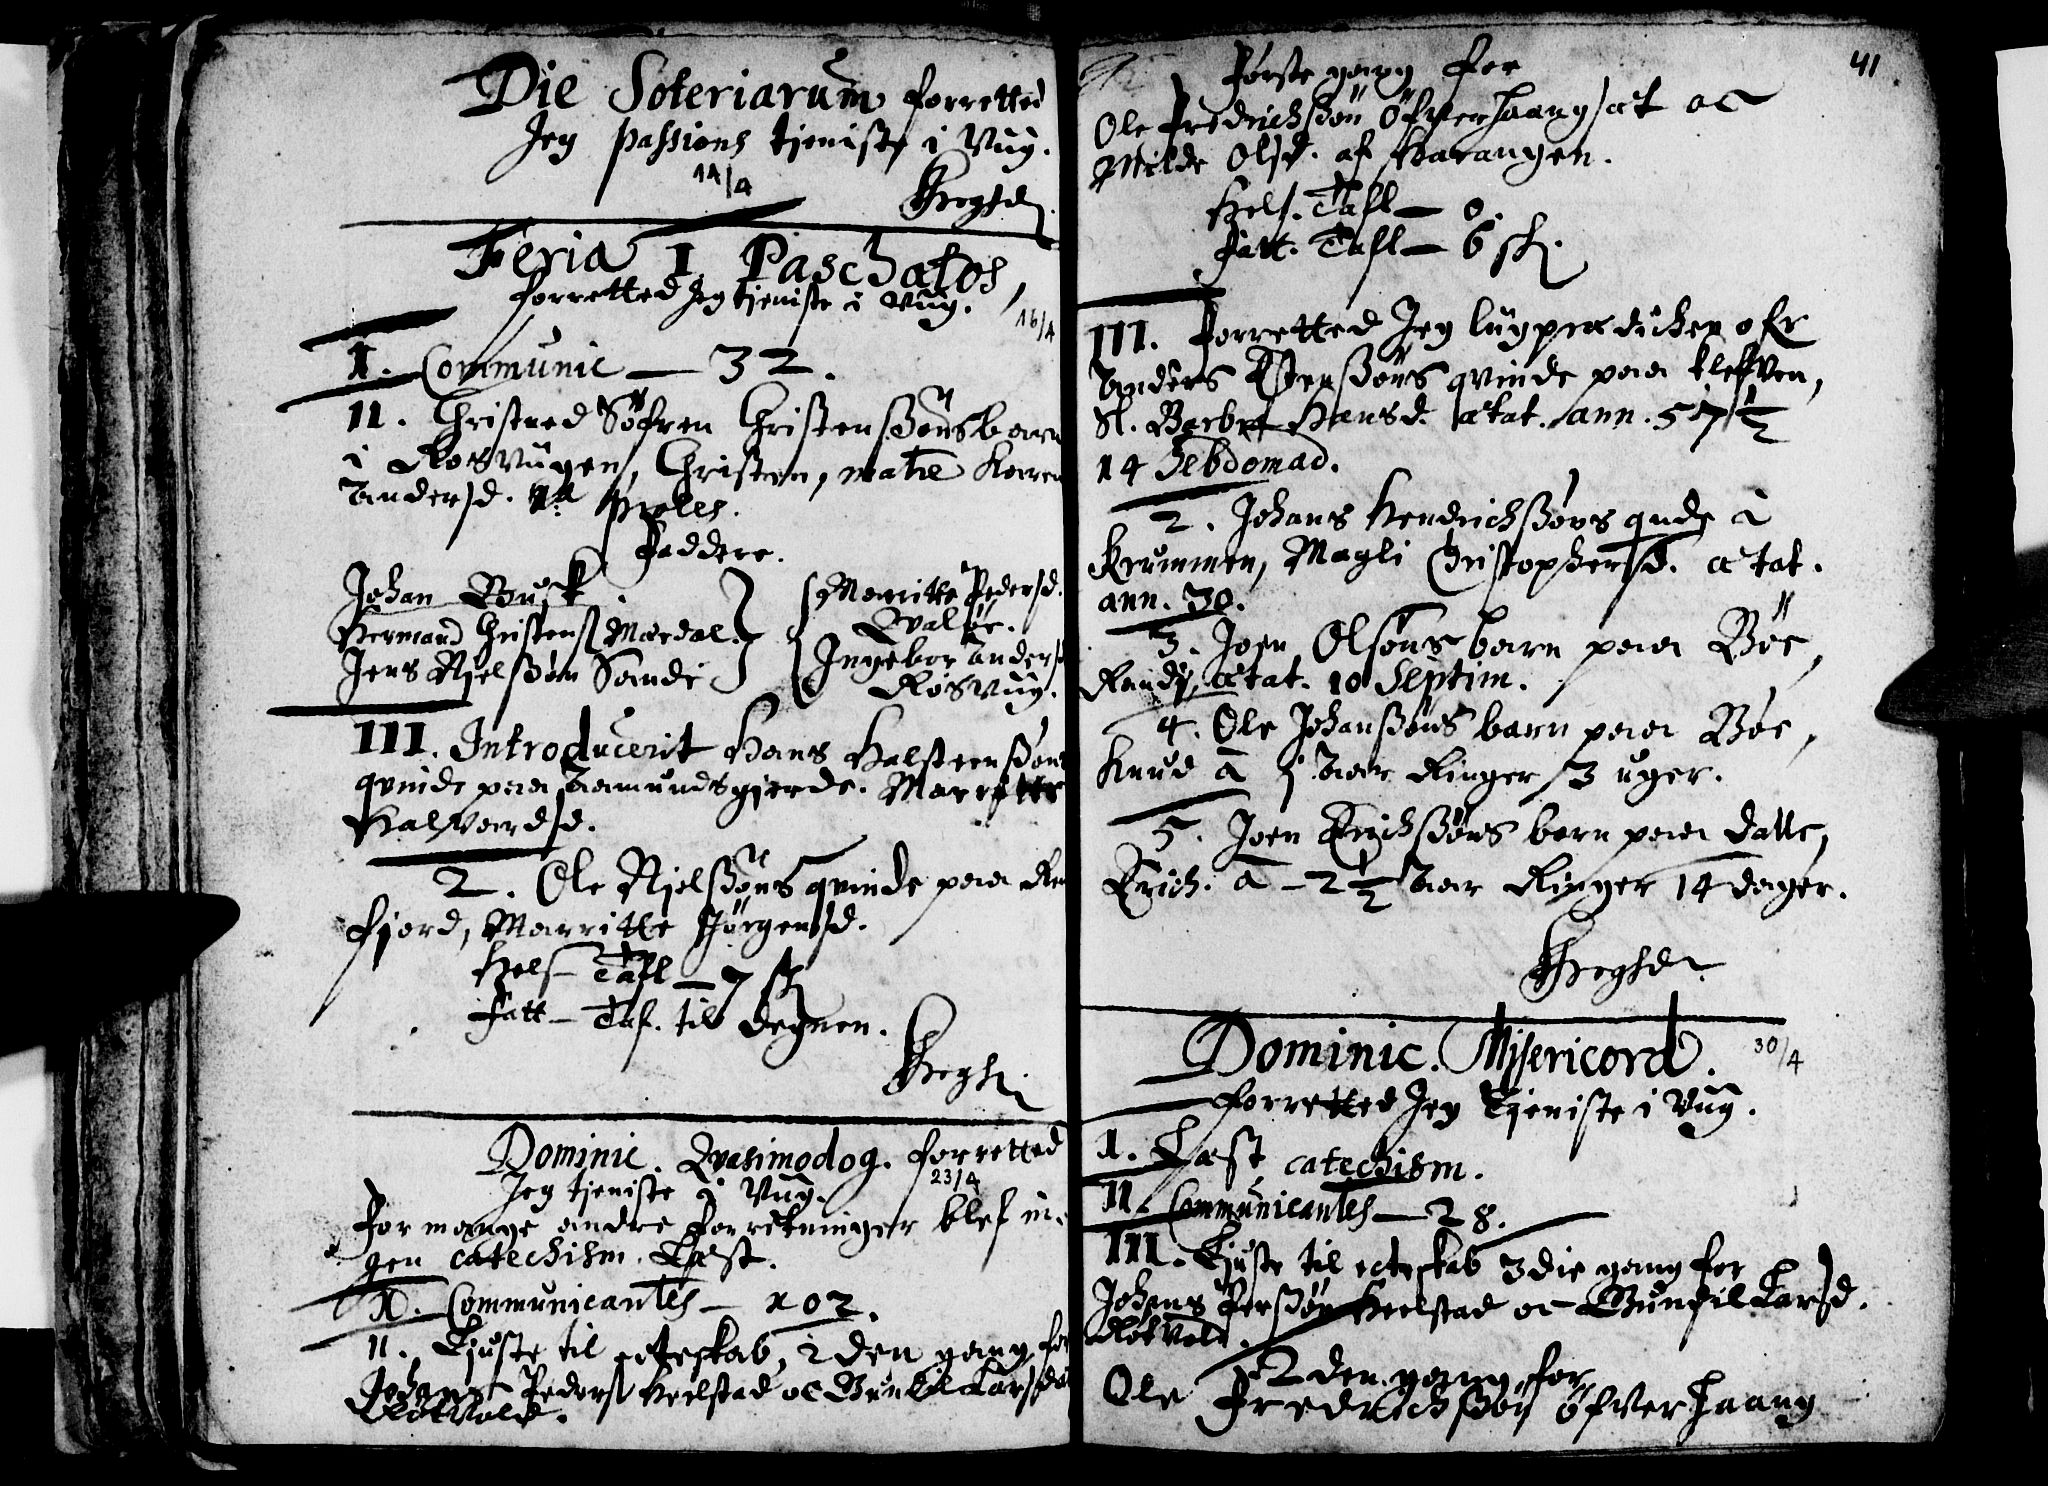 Die Soteriarum forretted
Jeg passions tjeniste i Vug.
14/4
Feria I Paschatos,
forretted Jeg tjeniste i Vug.
16/4
I. Communic — 32.
II. Christned Söfren Christenssöns barn
i Rosvugen, Christen, matre Karen
Andersd.
Faddere.
Johan Busk
Hermand Christens Mærdal.
Jens Njelssön Sande
Marritte Pedersd.
Qvalöe.
Ingebor Anders
Rosvug.
III. Introducerit Hans Halsteenssöns
qvinde paa Aamundsgjerde. Marritte
Halvordsd.
2. Ole Njelssöns qvinde paa
fjord, Marritte Jörgensd.
Hels Tafl — 7 sk
Fatt — Taf. til degnen.
Dominic. Qvasimodog. forretted
23/4
Jeg tjeniste i Vug.
For mange andre forretninger blef in-
gen catechism. Læst.
I. Communicantes — 102.
II. Liuste til ecteskab, 2den gang for
Johans Peders Heelstad oc Gunhil Larsd
41
Förste gang for
Ole Fredrichssön Öfverhaang oc
Milde Olsd. af Harangen.
Hels. Tafl — 0.
Fatt. Tafl — 6 sk
III. Forretted Jeg lugprædicken ofr
Anders Estenssöns qvinde paa klefven,
Sl. Hansd. ætat. ann. 57 1/2
14 Hebdomad.
2. Johans Hendrichssöns qvde i
Krummen, Magli Christophersd. ætat.
ann. 30.
3. Joen Olsöns barn paa Böe,
Randi, ætat. 10 Septim.
4. Ole Johanssöns barn paa Böe,
Knud à j aar Ringer 3 uger.
5. Joen Erichssöns barn paa dalle,
Erich. à — 2 1/2 Aar Ringer 14 dager.
Dominic. Misericord. 30/4
forretted Jeg Tjeniste i Vug.
I. Læst catechism.
II. Communicantes — 28.
III. Liuste til ecteskab 3die gang for
Johans Perssön Heelstad oc Gunhil Larsd.
2den gang for
Ole Fredrichssön Öfverhaang